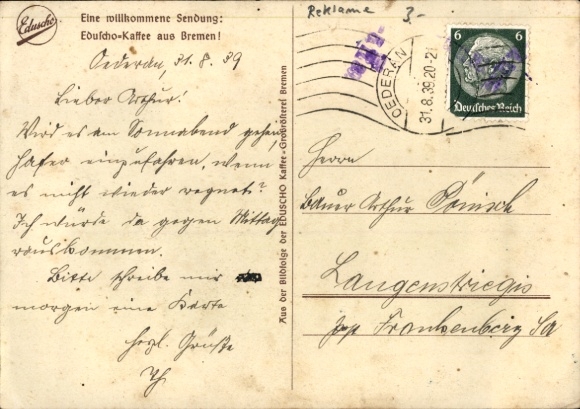 Reklame 3-
Eduscho
Eine willkommene Sendung:
Eduscho-Kaffee aus Bremen!
Oederan, 31.8.39
Lieber Arthur!
Wird es am Sonnabend gehen,
Hafer einzufahren, wenn
es nicht wieder regnet?
Ich würde da gegen Mittag
rauskommen.
Bitte schreibe mir
morgen eine Karte
herzl. Grüße
Aus der Bildfolge der EDUSCHO Kaffee-Großrösterei Bremen
OEDERAN
31.8.39.20-21
6 6
Deutsches Reich
Herrn
Bauer Arthur Bönisch
Langenstriegis
Frankenberg Sa